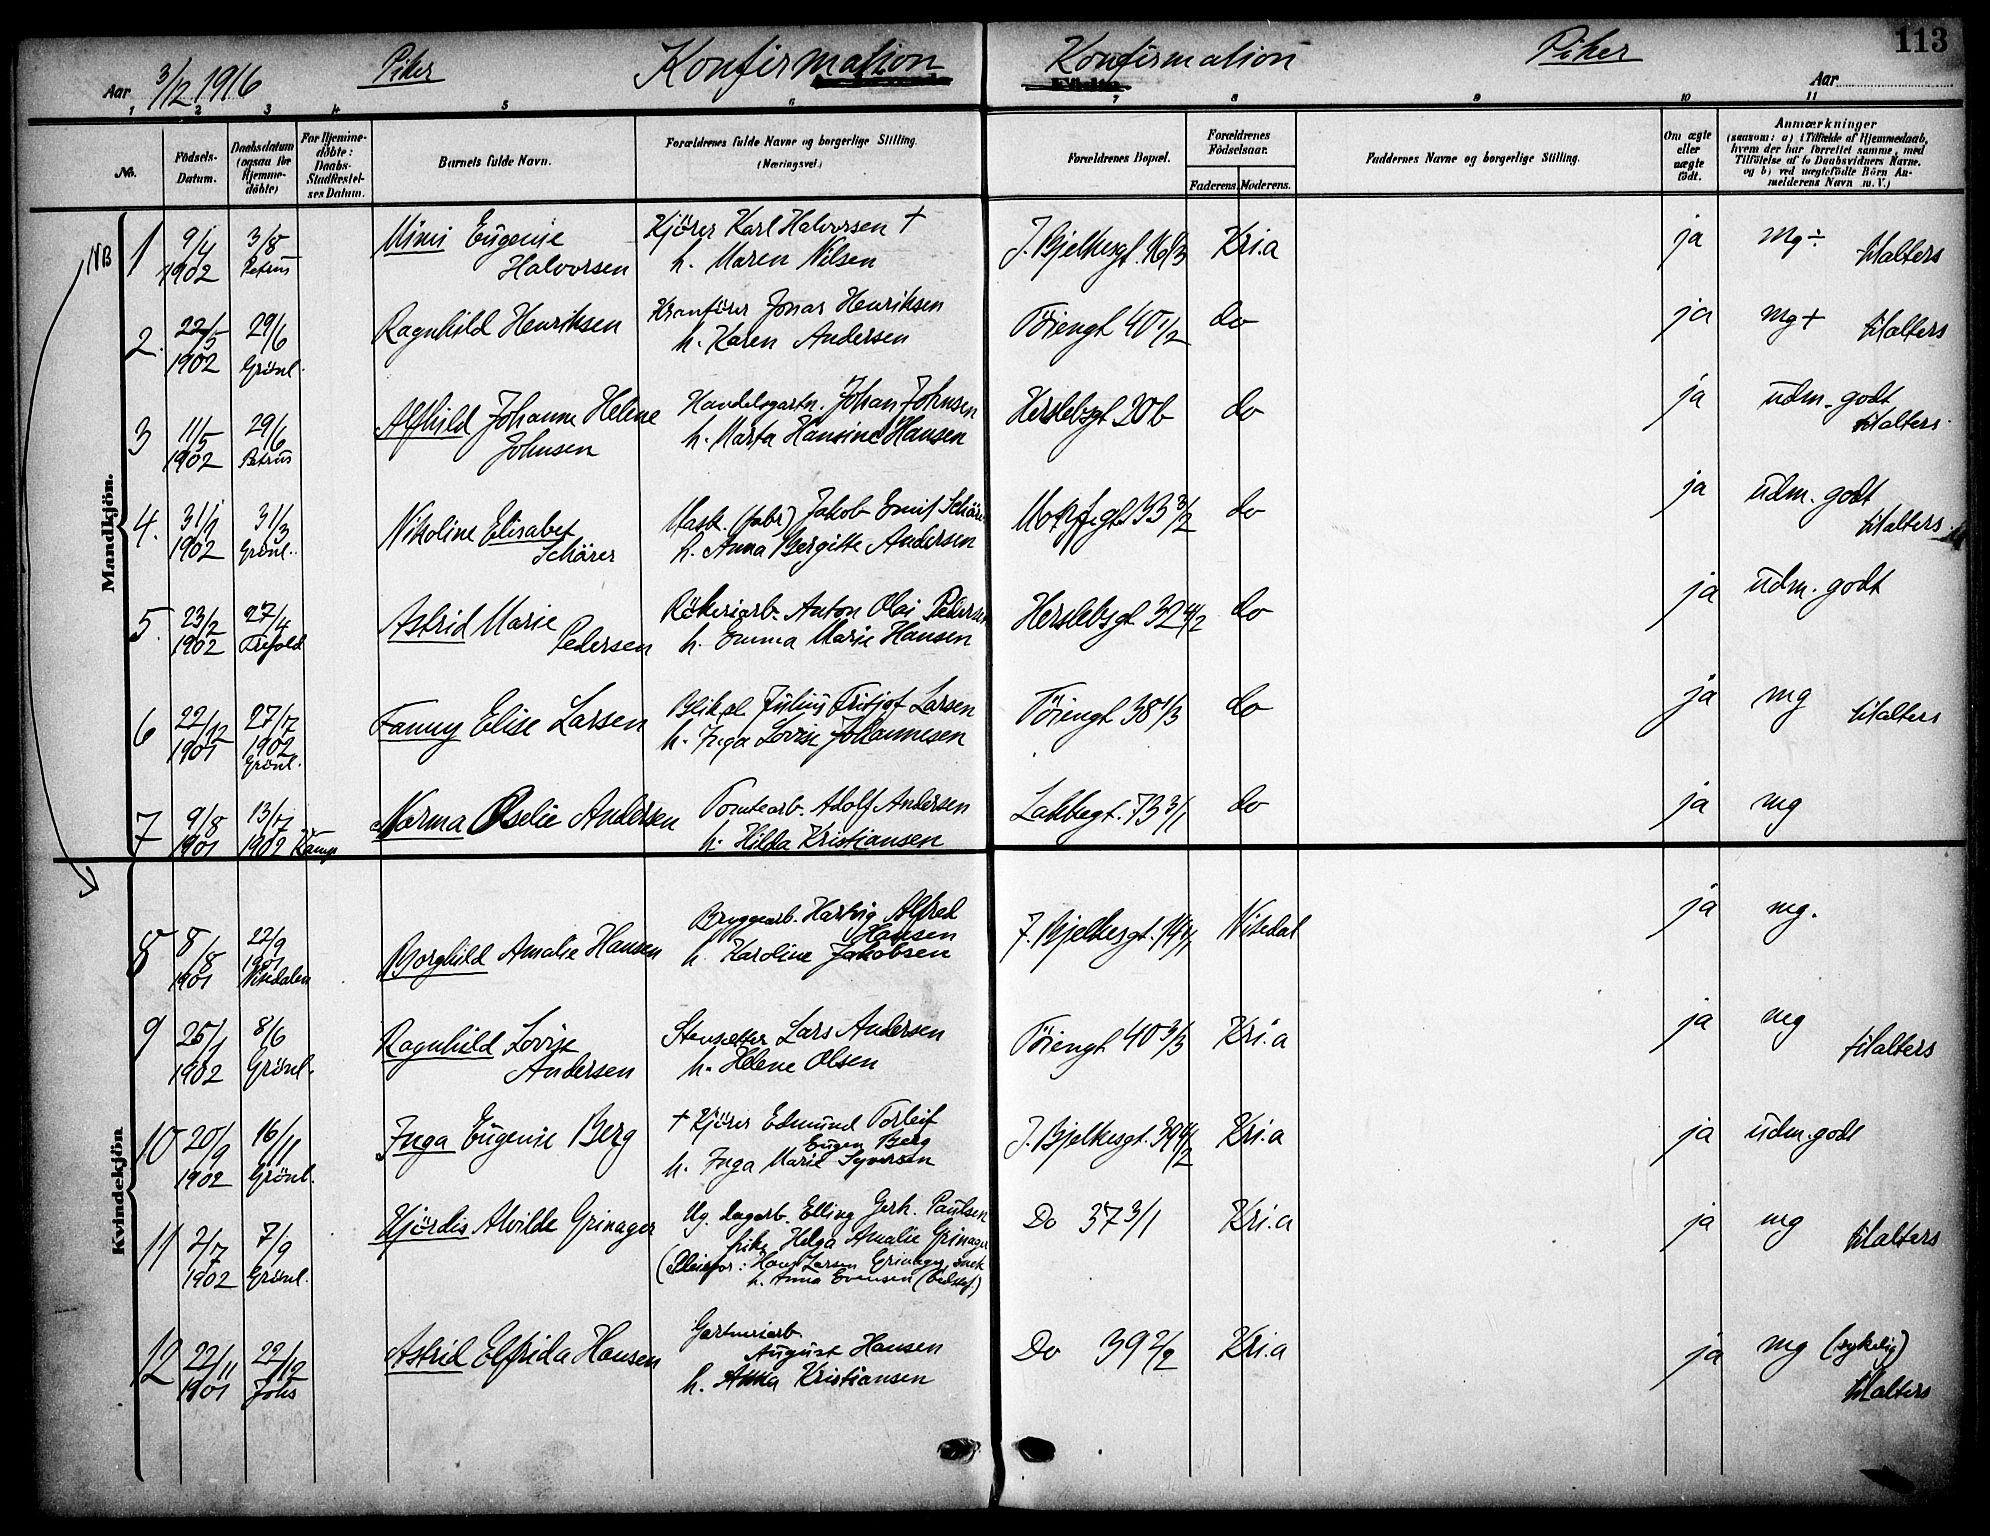 113
Aar 3/12 1916 Piker Konfirmation
Konfirmation Piker Aar
1 2 3 4 5 6 7 8 9 10 11
No.
Födsels-
Datum.
Daabsdatum
(ogsaa for
Hjemme-
döbte)
For Hjemme-
döbte:
Daabs-
Stadfæstel-
ses Datum.
Barnets fulde Navn.
Forældrenes fulde Navne og borgerlige Stilling.
(Næringsvei.)
Forældrenes Bopæl.
Forældrenes
Födselsaar.
Faderens. Moderens.
Faddernes Navne og borgerlige Stilling.
Om ægte
eller
uægte
födt.
Anmærkninger
(saasom: a) i Tilfælde af Hjemmedaab,
hvem der har forrettet samme, med
Tilföielse af to Daabsvidners Navne.
og b) ved uægtefödte Börn An-
melderens Navn m. V.)
Mandkjön.
Kvindekjön
NB
1 9/4 1902 3/8 Petrus Mimi Eugenie Halvorsen
Kjörer Karl Halvorsen +
h. Maren Nilsen
J. Bjelkesgt. 16/3 Kri.a ja mg÷ tilalters
2. 22/5 1902 29/6 Grönl. Ragnhild Henriksen
Kranförer Jonas Henriksen
h. Karen Andersen
Töiengt 40 1/2 do ja mg+ tilalters
3 11/5 1902 29/6 Petrus Alfhild Johanne Helene Johnsen
Handelsgartn. Johan Johnsen
h. Marta Hansine Hansen
Herslebsgt 20b do ja udm. godt tilalters.
4. 31/1 1902 31/3 Grönl. Nikoline Elisabet Schärer
Mask. (fabr) Jakob Emil Schärer
h. Anna Bergitte Andersen
33 3/2 do ja udm. godt tilalters
5. 23/2 1902 27/4 Astrid Marie Pedersen
Rökeriarb. Anton Olai Pedersen
h. Emma Marie Hansen
Herslebsgt 32 4/2 do ja udm. godt
6 22/12 1901 27/7 1902 Grönl. Fanny Elise Larsen
Uliksl. Julius Fritjof Larsen
h. Inga Lovise Johannesen
Töiengt 38 1/3 do ja mg tilalters
7 9/8 1901 13/7 1902 Kamp. Norma Oselie Andersen
Tomtearb. Adolf Andersen
h. Hilda Kristiansen
Lakkegt. 73 3/1 do ja mg
8 8/8 1901 22/9 1901 Borghild Amalie Hansen
Bryggearb. Hartvig Alfred
Hansen
h. Karoline Jakobsen
J. Bjelkesgt. ja mg.
9 25/1 1902 8/6 Grönl. Ragnhild Lovise Andersen
Stensætter Lars Andersen
h. Helene Olsen
Töiengt 40 3/3 Kri.a ja mg tilalters
10 20/9 1902 16/11 Grönl. Inga Eugenie Berg
+ Kjörer Edmund Torleif
Eugen Berg
h. Inga Marie Syversen
J. Bjelkesgt. 39 4/2 Kri.a ja udm. godt
11 2/7 1902 7/9 Grönl. Hjördis Alvilde Grinager
Ug. lagerb. Elling Gerh. Paulsen
pike Helga Amalie Grinager
(Pleiefor: Hans Larsen Grinager, snek
h. Anna Evensen (Bedstef.)
Do 37 3/1 Kri.a ja mg tilalters
12 22/11 1901 22/12 Johs Astrid Elfrida Hansen
Gartneriarb
August Hansen
h. Anna Kristiansen
Do 39 2/2 Kri.a ja mg (sykelig) tilalters